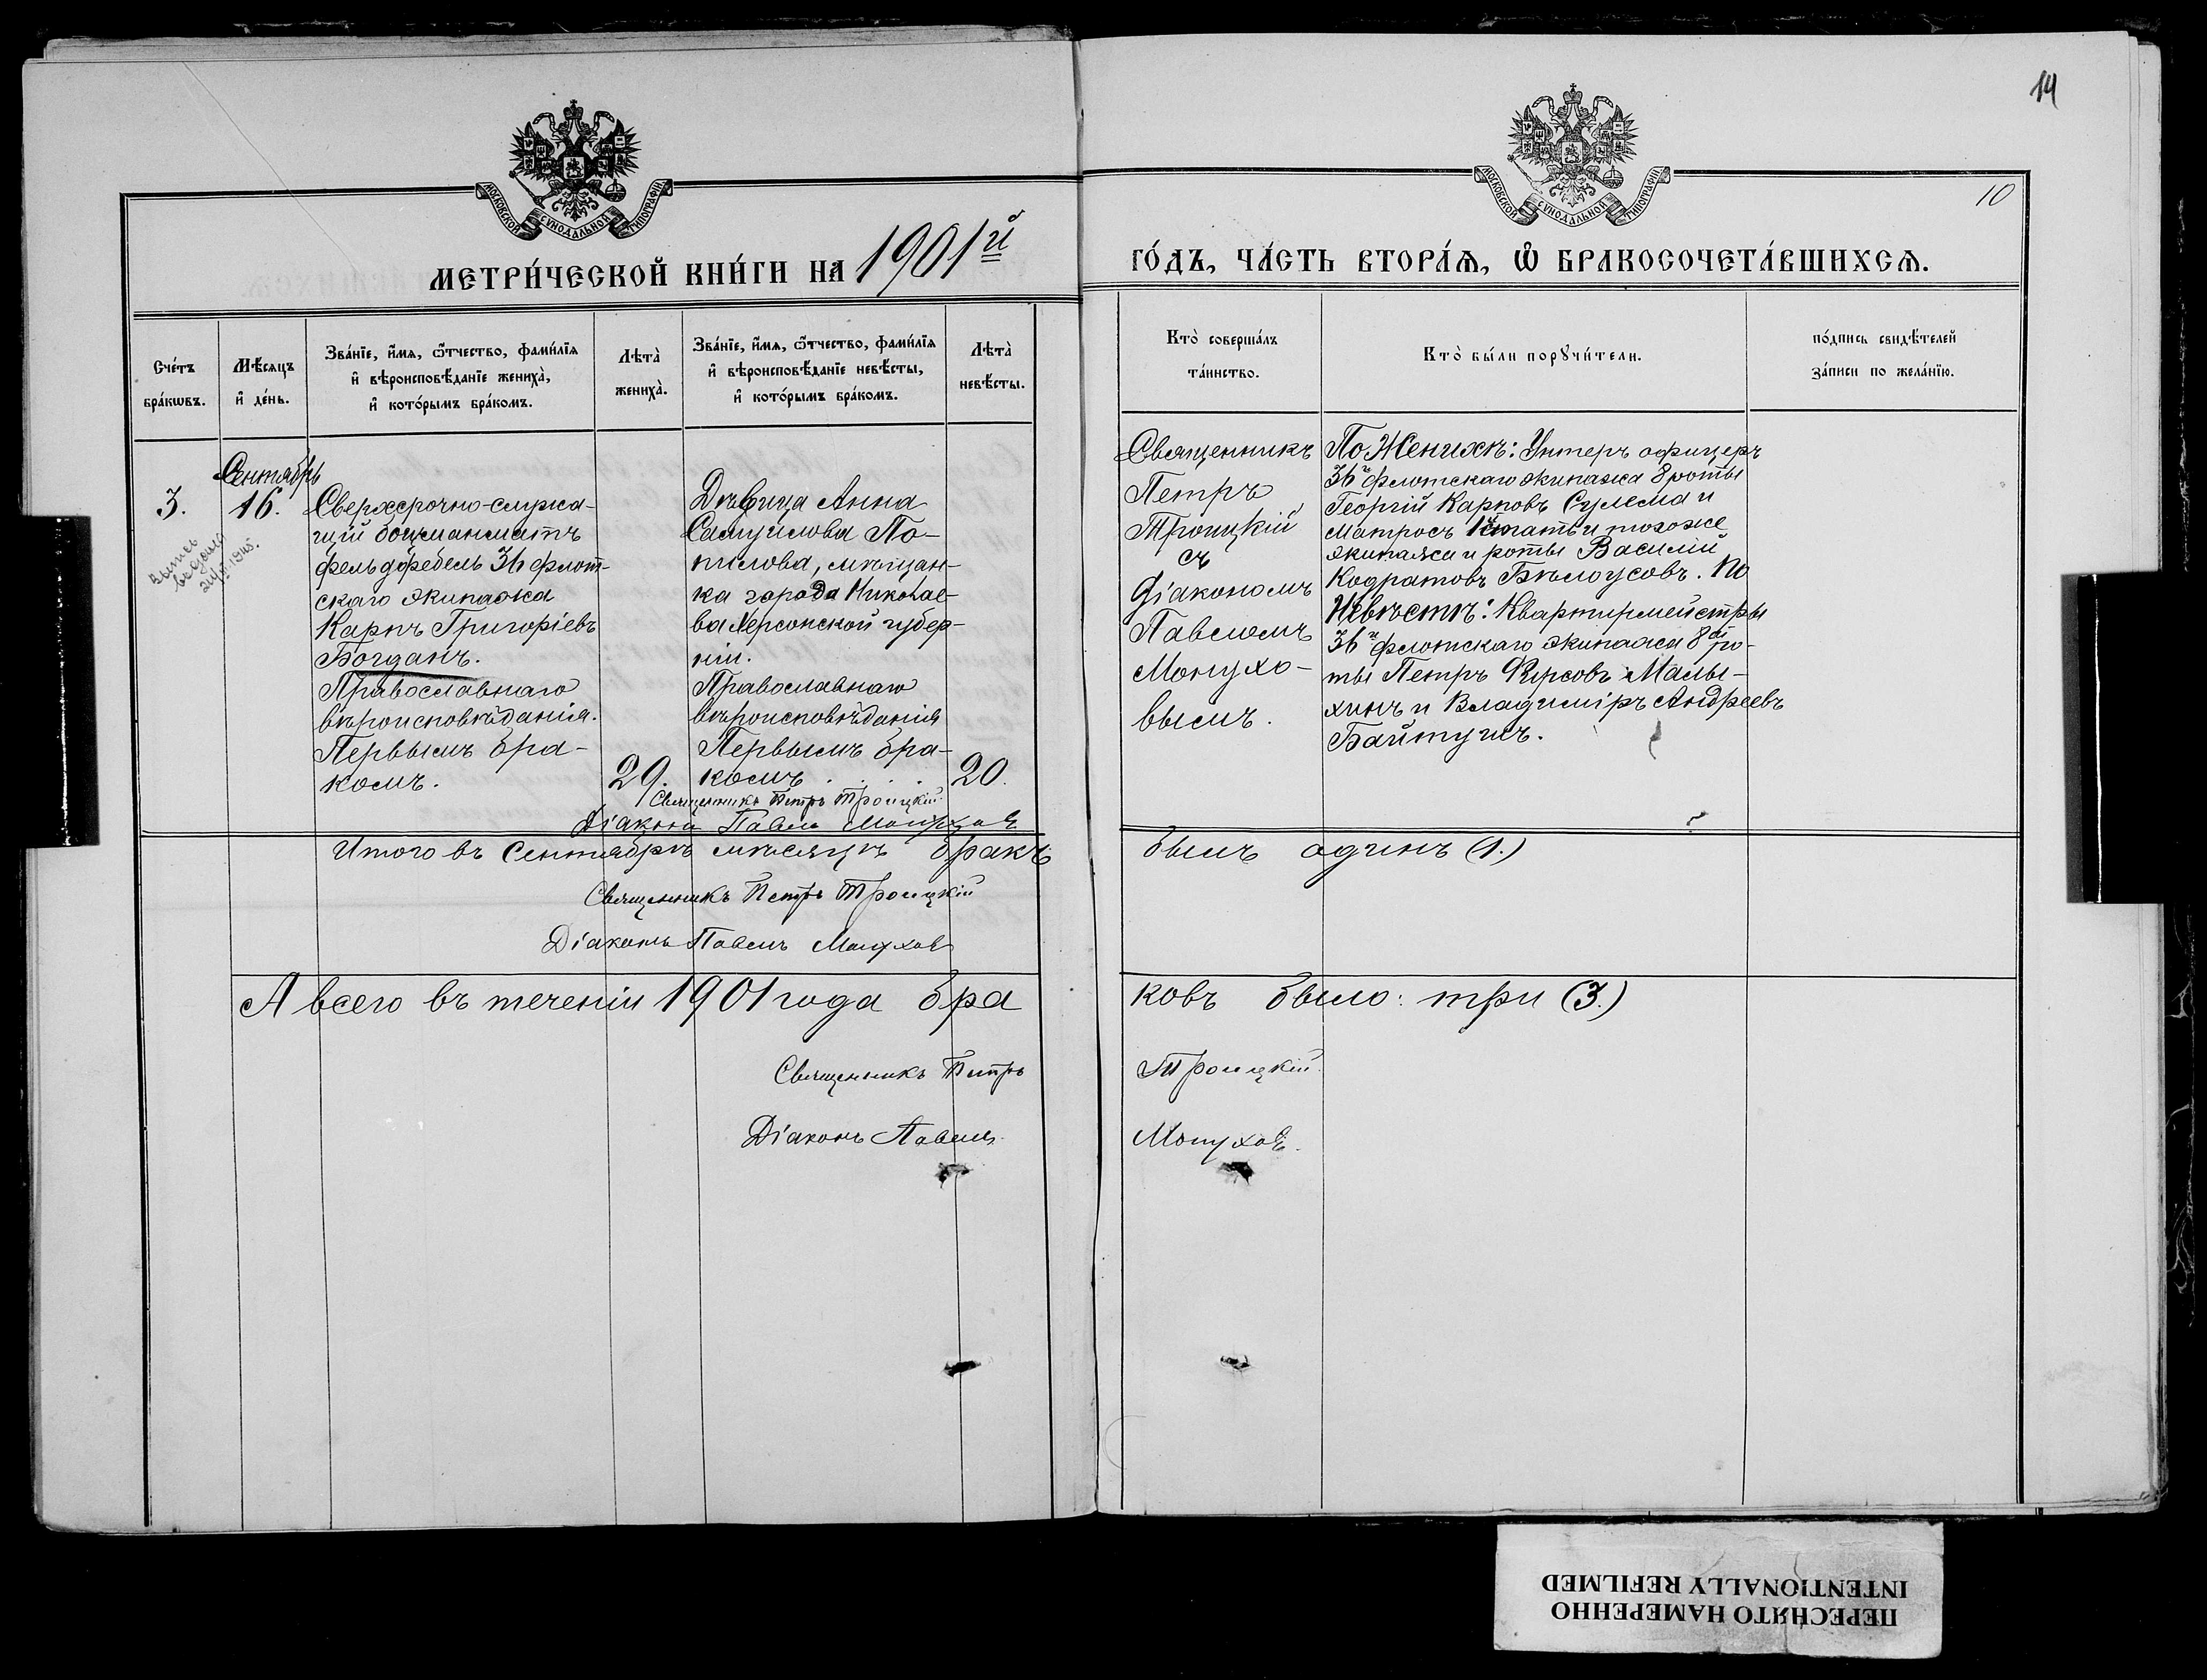 14
10
МОСКОВСКОЙ СѴНОДАЛЬНОЙ ТИПОГРАФІИ
МОСКОВСКОЙ СѴНОДАЛЬНОЙ ТИПОГРАФІИ
МЕТРИ́ЧЕСКОЙ КНИ́ГИ НА 1901й
ГО́ДЪ, ЧА́СТЬ ВТОРА́Ѧ, Ѽ БРАКОСОЧЕТА́ВШИХСѦ.
Сче́тъ бра́кѡвъ.
Мѣ́сяцъ и҆ де́нь.
Зва́нїе, и҆́мѧ, ѻ҆́тчество, фами́лїѧ и҆ вѣроисповѣ́данїе жениха̀, и҆ кото́рымъ бра́комъ.
Лѣта̀ жениха̀.
Зва́нїе, и҆́мѧ, ѻ҆́тчество, фами́лїѧ и҆ вѣроисповѣ́данїе невѣ́сты, и҆ кото́рымъ бра́комъ.
Лѣта̀ невѣ́сты.
Кто̀ соверша́лъ та́инство.
Кто̀ бы́ли порꙋчи́тели.
По́дпись свидѣ́телей за́писи по жела́нїю.
3.
Сентябрь
16.
Сверхсрочно-служа-
щій боцманматъ
фельдфебель 36 флот-
скаго экипажа
Карпъ Григоріевъ
Богданъ.
Православнаго
вѣроисповѣданія.
Первымъ бра-
комъ.
29.
Дѣвица Анна
Самуилова По-
пилова, мѣщан-
ка города Николае-
ва Херсонской губер-
ніи.
Православнаго
вѣроисповѣданія
Первымъ бра-
комъ
20.
Священникъ
Петръ
Троицкій
съ
Діакономъ
Павломъ
Мопухо-
вымъ.
По Женихѣ: Унтеръ офицеръ
36го флотскаго экипажа 8 роты
Георгій Карповъ Сулема и
матросъ 1й статьи тогоже
экипажа и роты Василій
Кодратовъ Бѣлоусовъ. По
Невѣстѣ: Квартирмейстры
36го флотскаго экипажа 8ой ро-
ты Петръ Фирсовъ Малы-
хинъ и Владиміръ Андреевъ
Байтугъ.
Священникъ Петръ Троицкій
Діаконъ Павелъ Мопуховъ
Итого въ Сентябрѣ мѣсяцѣ бракъ
былъ одинъ (1.)
Священникъ Петръ Троицкій
Діаконъ Павелъ Мопуховъ
А всего въ теченіи 1901 года бра
ковъ было: три (3.)
Священникъ Петръ
Троицкій.
Діаконъ Павелъ
Мопуховъ.
ПЕРЕСНЯТО НАМЕРЕННО
INTENTIONALLY REFILMED